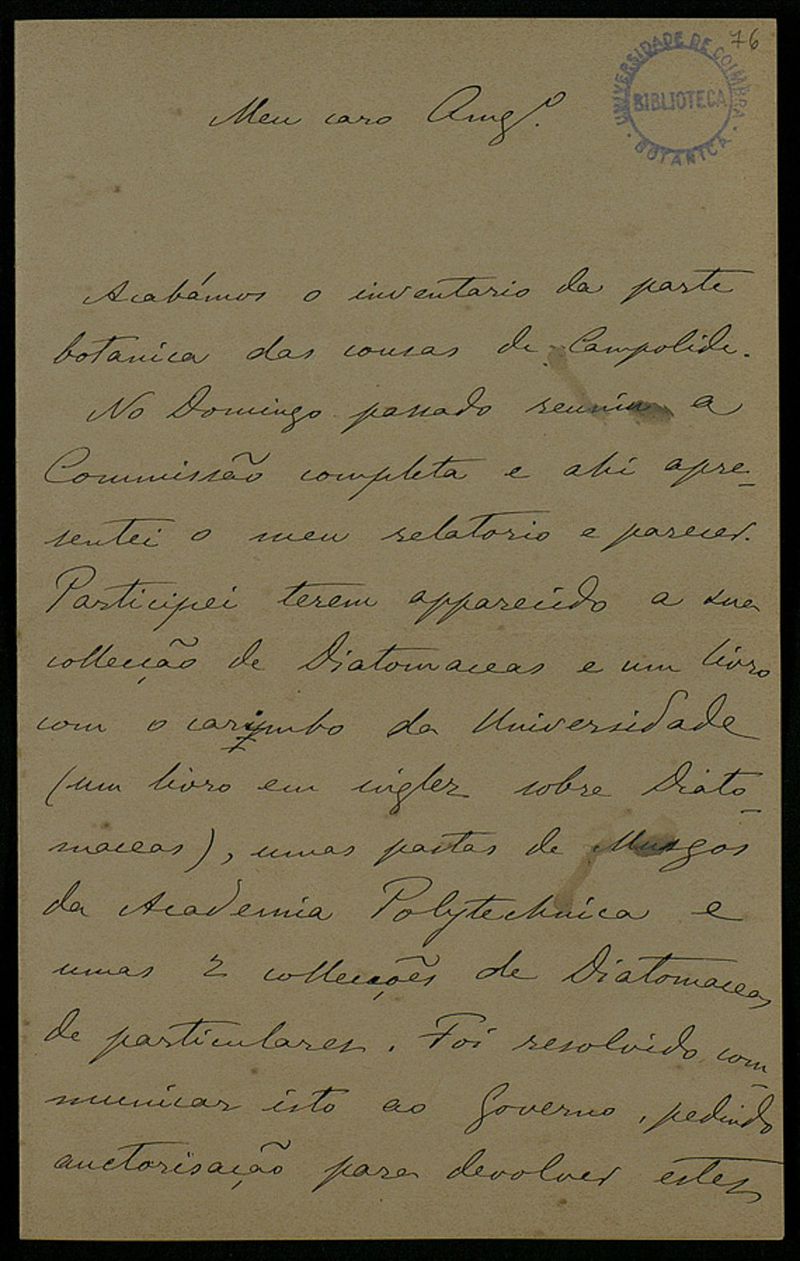 76
UNIVERSIDADE DE COIMBRA
BIBLIOTECA
BOTANICA
Meu caro Amgº.
Acabámos o inventario da parte
botanica das cousas de Campolide.
No Domingo passado reuniu a
Commissão completa e ahi apre-
sentei o meu relatorio e parecer.
Participei terem apparecido a sua
collecção de Diatomaceas e um livro
com o carimbo da Universidade
(um livro em inglez sobre Diato-
maceas), umas pastas de Musgos
da Academia Polytechnica e
umas 2 collecções de Diatomaceas
de particulares. Foi resolvido com-
municar isto ao Governo, pedindo
auctorisação para devolver estes